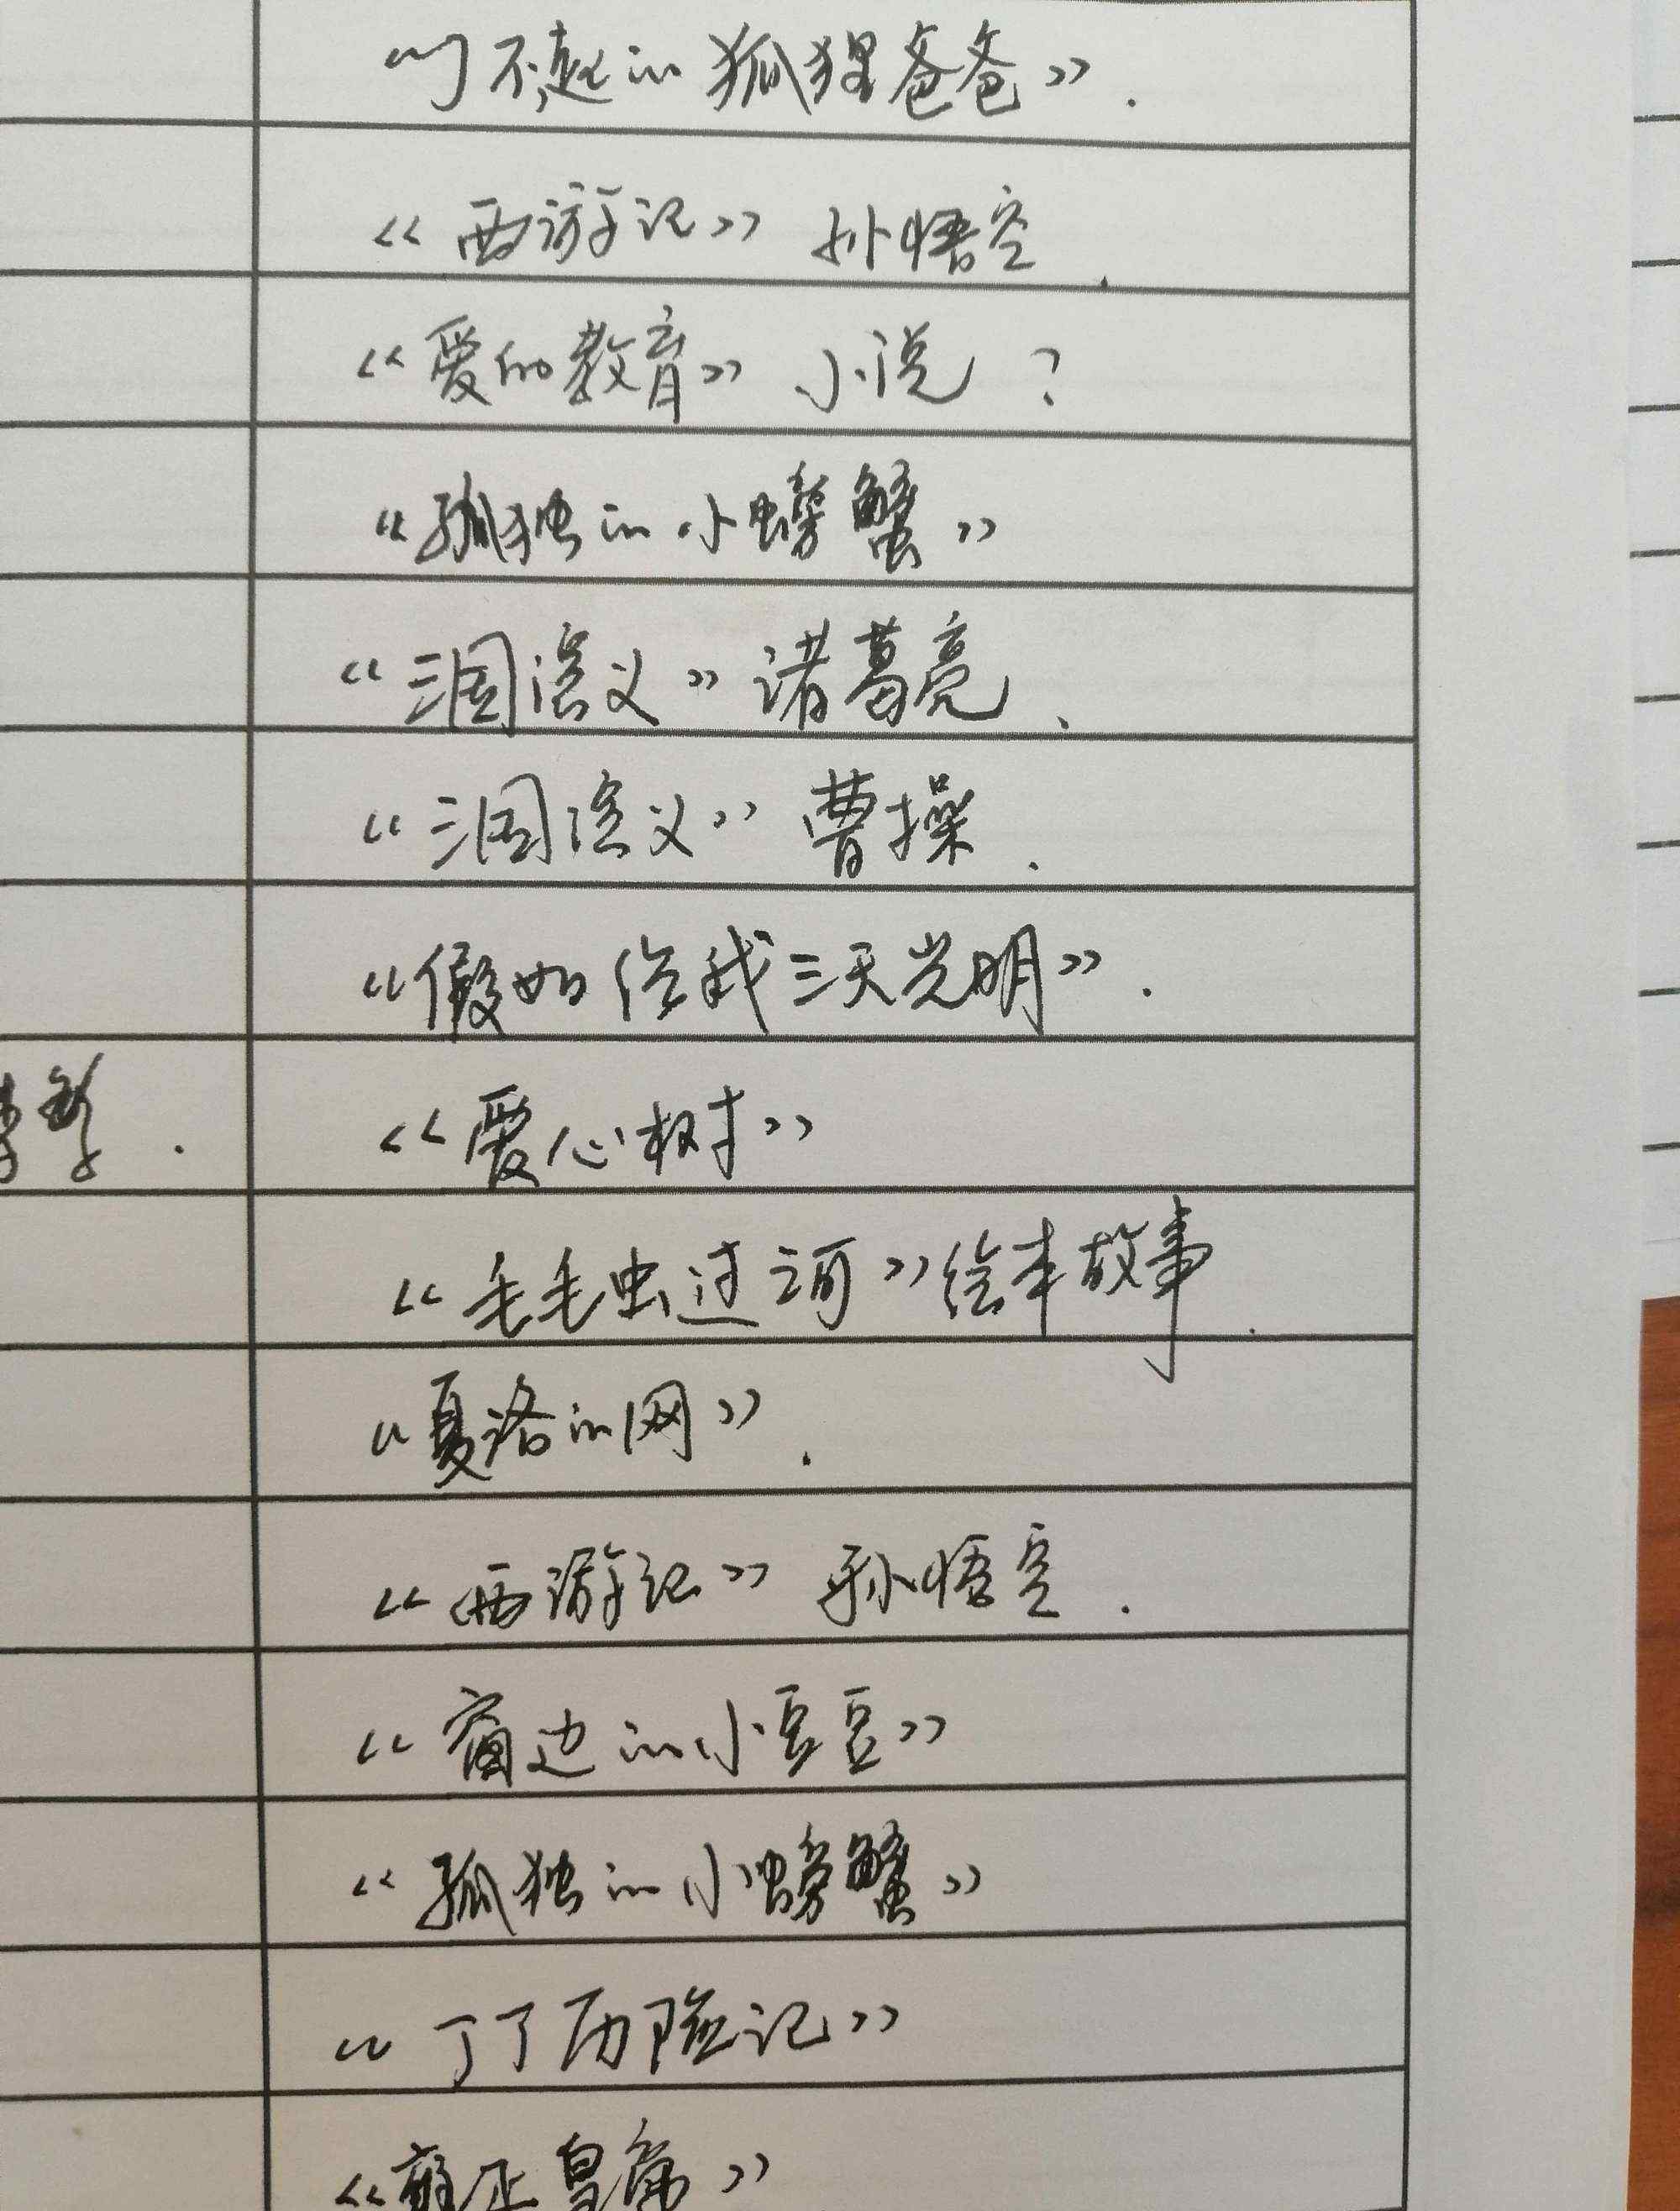 《了不起的狐狸爸爸》.
《西游记》 孙悟空.
《爱的教育》 小说 ?
《孤独的小螃蟹》
《三国演义》 诸葛亮、
《三国演义》 曹操.
《假如给我三天光明》.
《爱心树》
《毛毛虫过河》绘本故事.
《夏洛的网》.
《西游记》 孙悟空.
《窗边的小豆豆》
《孤独的小螃蟹》
《丁丁历险记》
《雍正皇帝》